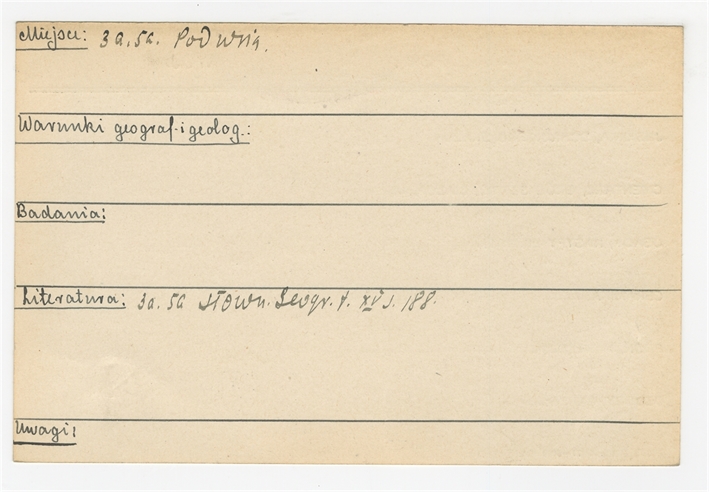 Miejsce: 3a.5a. Pod wsią.
Warunki geograf. i geolog.:
Badania:
Literatura: 3a. 5a Słown. Geogr. t. XV s. 188.
Uwagi: